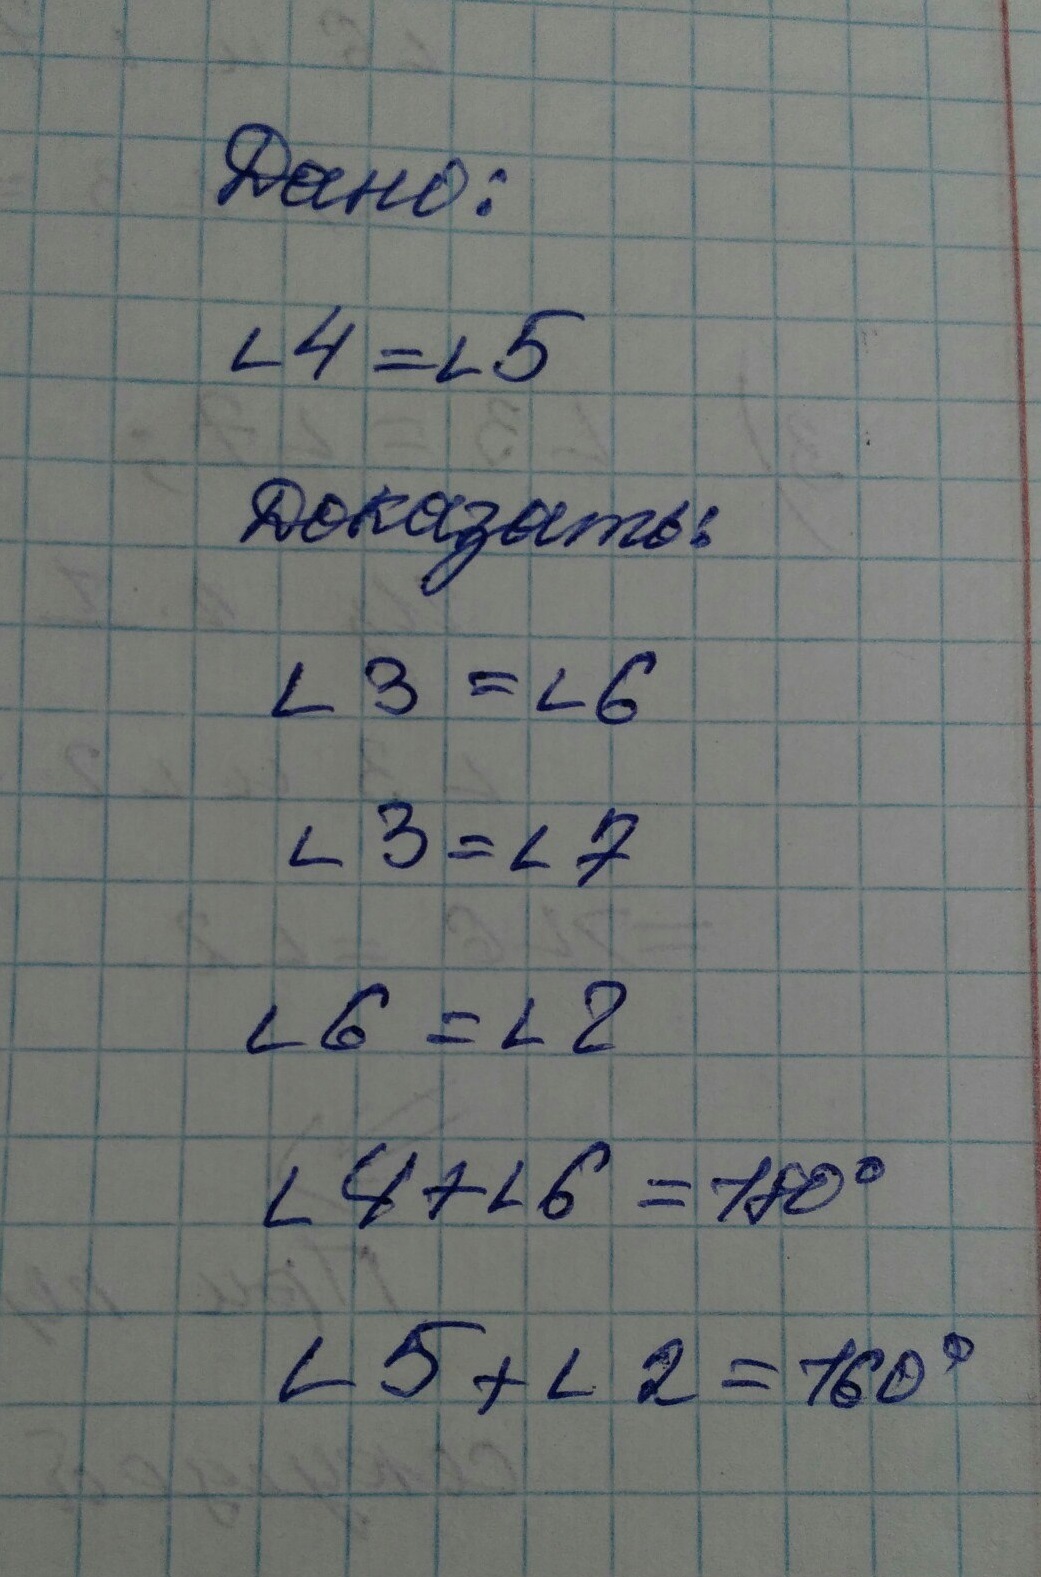 Дано:
∠4 = ∠5
Доказать:
∠3 = ∠6
∠3 = ∠7
∠6 = ∠2
∠4 + ∠6 = 180°
∠5 + ∠2 = 160°